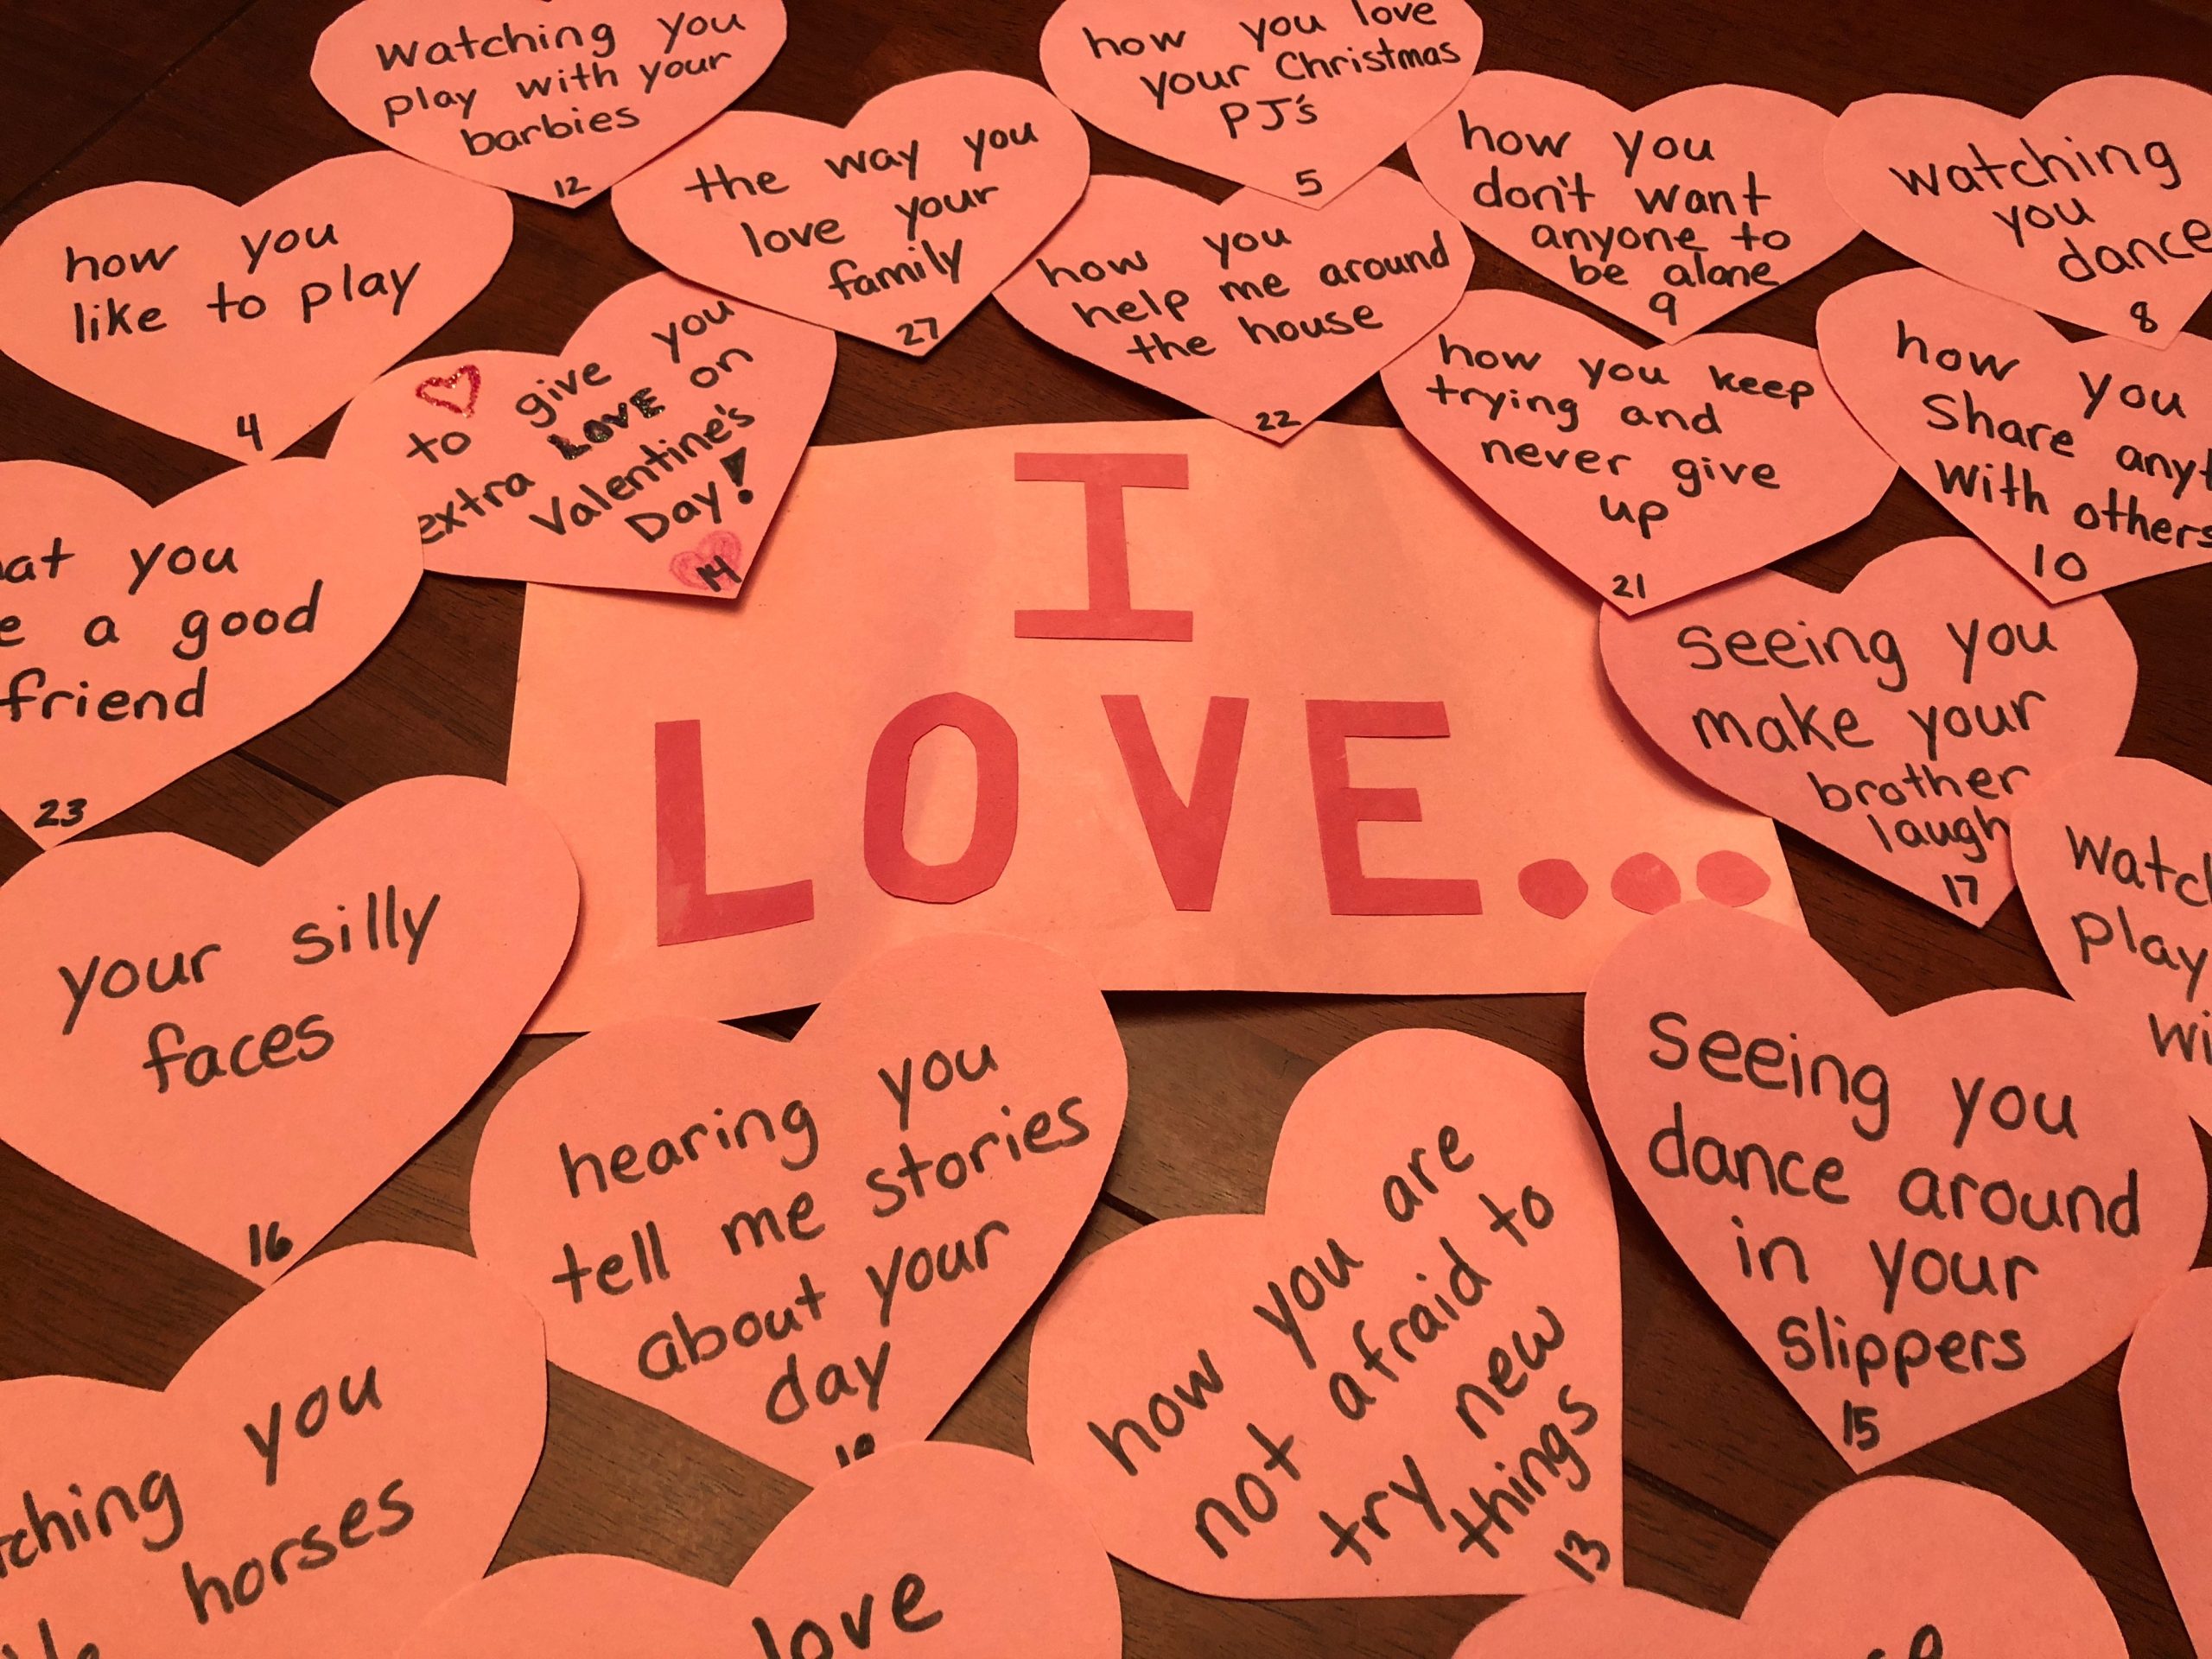 watching you
play with your
barbies
12
how you love
your Christmas
PJ's
5
the way you
love your
family
27
how you
don't want
anyone to
be alone
9
watching
you
dance
8
how you
like to play
4
how you
help me around
the house
22
to give you
extra LOVE on
Valentine's
Day!
14
how you keep
trying and
never give
up
21
how you
Share
with others
10
I
LOVE...
you
a good
friend
23
seeing you
make your
brother
laugh
17
your silly
faces
16
play
hearing you
tell me stories
about your
day
how you are
not afraid to
try new
things
13
seeing you
dance around
in your
slippers
15
you
horses
love